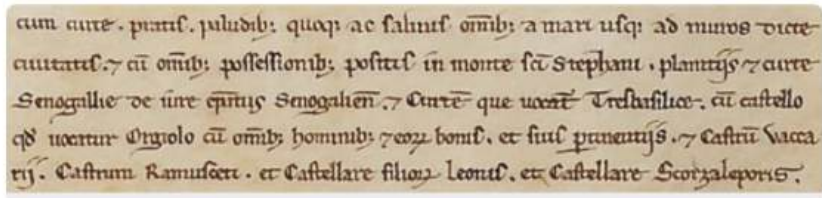 cum curte. pratis. paludib; quoq; ac salinis om̄ib; a mari usq; ad muros dicte
ciuitatis. ⁊ cū om̄ib; possessionib; positis in monte sc̄i Stephani. planitijs ⁊ curte
Senogallie de iure ep̄atus Senogalien̄. ⁊ Curtē que uocat̄ Tresbasilice. cū castello
qd̄ uocatur Orgiolo cū om̄ib; hominib; ⁊ eoꝝ bonis. et suis ꝑtinentijs. ⁊ Castrū Vacca
rij. Castrum Ramusceti. et Castellare filioꝝ Leonis. et Castellare Scorzaleporis.